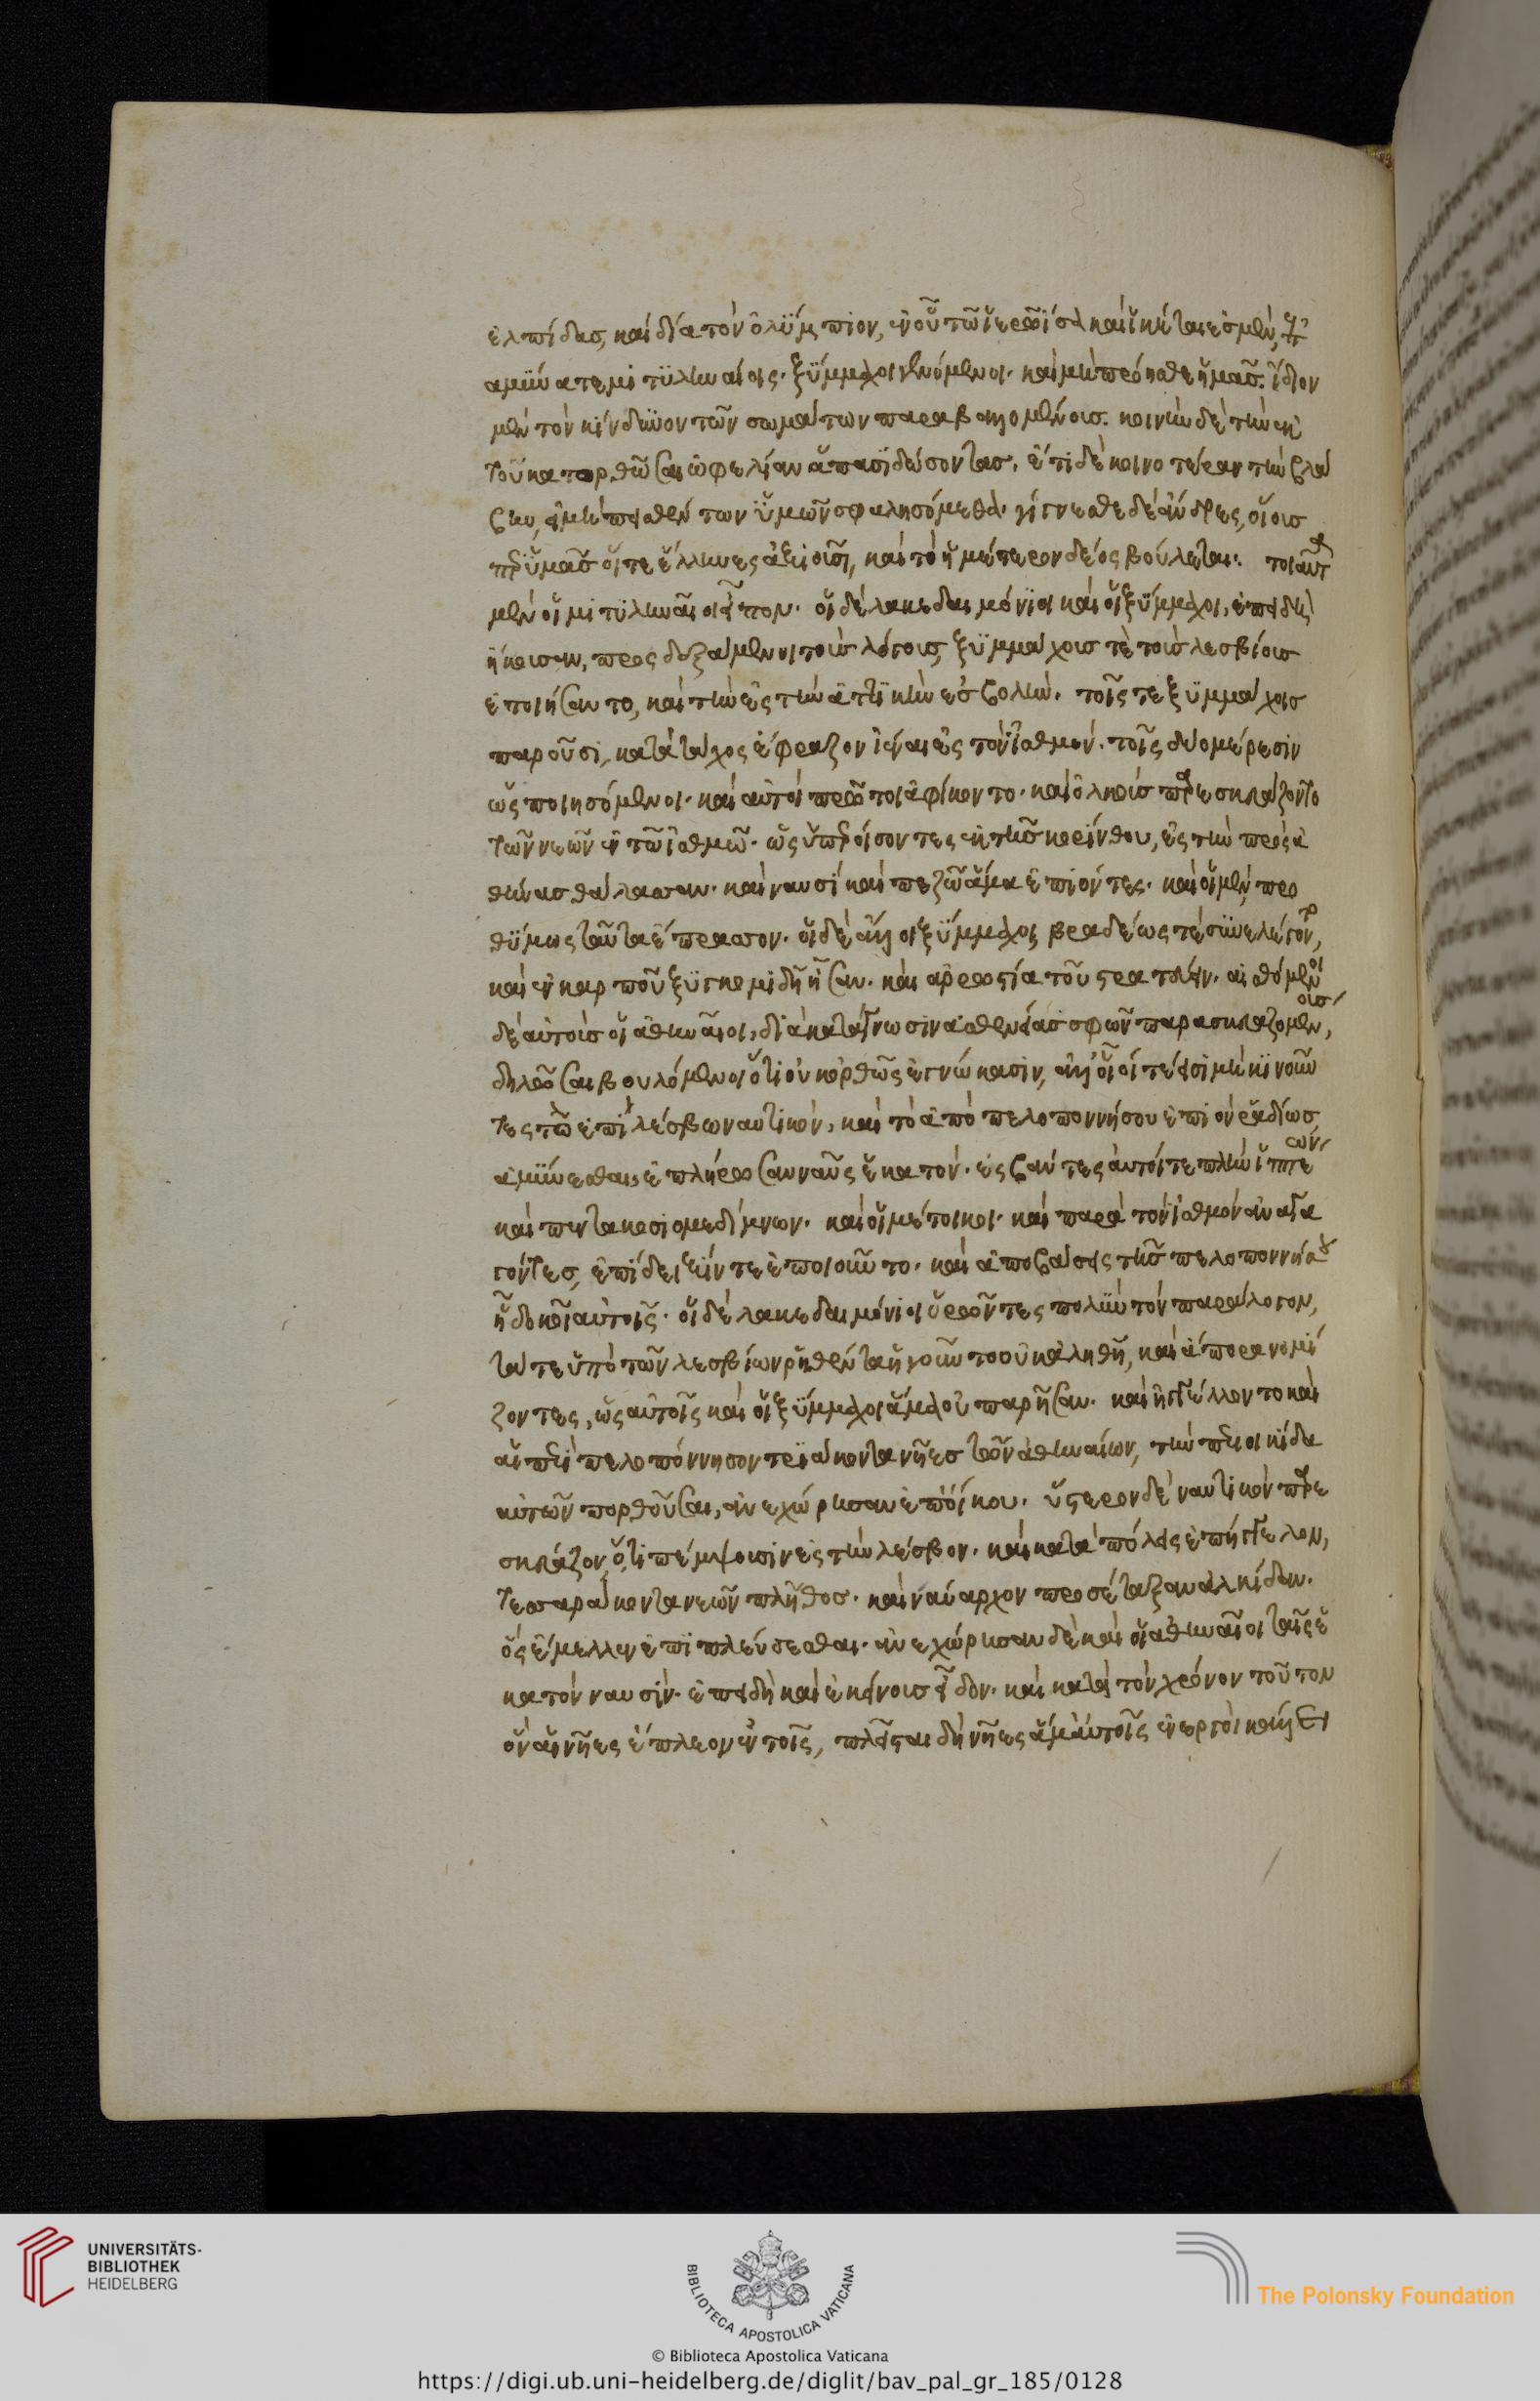 ἐλπίδας, καὶ δία τὸν ὀλύμπιον, ἐν οὗ τῶ ἱερῶ ἴσα καὶ ἱκέται ἐσμὲν, ἐπ
αμύνατε μιτυληναίοις. ξύμμαχοι γενόμενοι. καὶ μὴ πρόησθε ἡμᾶς. ἴδιον
μὲν τὸν κίνδυνον τῶν σωμάτων παραβαλλομένους. κοινὴν δὲ τὴν ἐκ
τοῦ κατορθῶσαι ὠφελίαν ἅπασι δώσοντας. ἔτι δὲ κοινοτέραν τὴν βλά
βην, εἰ μὴ πεισθέντων ὑμῶν σφαλησόμεθα. γίγνεσθε δὲ ἄνδρες, οἵους
περ ὑμᾶς οἵ τε ἕλληνες ἀξιοῦσι, καὶ τὸ ἡμέτερον δέος βούλεται. τοιαῦτα
μὲν οἱ μιτυληναῖοι εἶπον. οἱ δὲ λακεδαιμόνιοι καὶ οἱ ξύμμαχοι, ἐπειδὴ
ἤκουσαν, προσδεξάμενοι τοὺς λόγους, ξυμμάχους τὲ τοὺς λεσβίους
ἐποιήσαντο, καὶ τὴν ἐς τὴν ἀττικὴν ἐσβολήν. τοῖς τε ξυμμάχοις
παροῦσι, κατὰ τάχος ἔφραζον ἰέναι ἐς τὸν ἰσθμόν. τοῖς δυο μέρεσιν
ὡς ποιησόμενοι. καὶ αὐτοὶ πρῶτοι ἀφίκοντο. καὶ ὁλκοὺς παρεσκεύαζοντο
τῶν νεῶν ἐν τῶ ἰσθμῶ. ὡς ὑπεροίσοντες ἐκ τῆς κορίνθου, ἐς τὴν πρὸς ἀ
θήνας θάλασσαν. καὶ ναυσὶ καὶ πεζῶ ἅμα ἐπιόντες. καὶ οἱ μὲν, προ
θύμως ταῦτα ἔπρασσον. οἱ δὲ ἄλλοι ξύμμαχοι, βραδέως τὲ συνελέγοντο,
καὶ ἐν καρποῦ ξυγκομιδῆ ἦσαν. καὶ ἀρρωστία τοῦ στρατεύειν. αἰσθόμενοι
δὲ αὐτοὺς οἱ ἀθηναῖοι, διὰ κατάγνωσιν ἀσθενείας σφῶν παρασκευαζομένους,
δηλῶσαι βουλόμενοι ὅτι οὐκ ὀρθῶς ἐγνώκασιν, ἀλλ' οἷοί τέ εἰσι μὴ κινοῦν
τες τὸ ἐπὶ λέσβω ναυτικὸν, καὶ τὸ ἀπὸ πελοποννήσου ἐπιὸν ῥαδίως
ἀμύνεσθαι, ἐπλήρωσαν ναῦς ἑκατόν. ἐσβάντες αὐτοί τε πλὴν ἱππέων
καὶ πεντακοσιομεδίμνων. καὶ οἱ μέτοικοι. καὶ παρὰ τὸν ἰσθμὸν ἀναγα
γόντες, ἐπίδειξίν τε ἐποιοῦντο. καὶ ἀποβάσεις τῆς πελοποννήσου
ἧ δοκοῖ αὐτοῖς. οἱ δὲ λακεδαιμόνιοι ὁρῶντες πολὺν τὸν παράλογον,
τά τε ὑπὸ τῶν λεσβίων ῥηθέντα ἡγοῦντο οὐκ ἀληθῆ, καὶ ἄπορα νομί
ζοντες, ὡς αὐτοῖς καὶ οἱ ξύμμαχοι ἅμα οὐ παρῆσαν. καὶ ἠγγέλλοντο καὶ
αἱ περὶ πελοπόννησον τριάκοντα νῆες τῶν ἀθηναίων, τὴν περιοικίδα
αὐτῶν πορθοῦσαι, ἀνεχώρησαν ἐπ' οἴκου. ὕστερον δὲ ναυτικὸν παρε
σκεύαζον, ὅτι πέμψουσιν ἐς τὴν λέσβον. καὶ κατὰ πόλεις ἐπήγγελον,
τεσσαράκοντα νεῶν πλῆθος. καὶ ναύαρχον προσέταξαν ἀλκίδαν.
ὃς ἔμελλεν ἐπιπλεύσεσθαι. ἀνεχώρησαν δὲ καὶ οἱ ἀθηναῖοι ταῖς ἑ
κατὸν ναυσὶν. ἐπειδὴ καὶ ἐκείνους εἶδον. καὶ κατὰ τὸν χρόνον τοῦτον
ὃν αἱ νῆες ἔπλεον ἐν τοῖς, πλεῖσται δὴ νῆες ἅμ' αὐτοῖς ἐνεργοὶ κάλλει
UNIVERSITÄTS-
BIBLIOTHEK
HEIDELBERG
BIBLIOTECA APOSTOLICA VATICANA
The Polonsky Foundation
© Biblioteca Apostolica Vaticana
https://digi.ub.uni-heidelberg.de/diglit/bav_pal_gr_185/0128